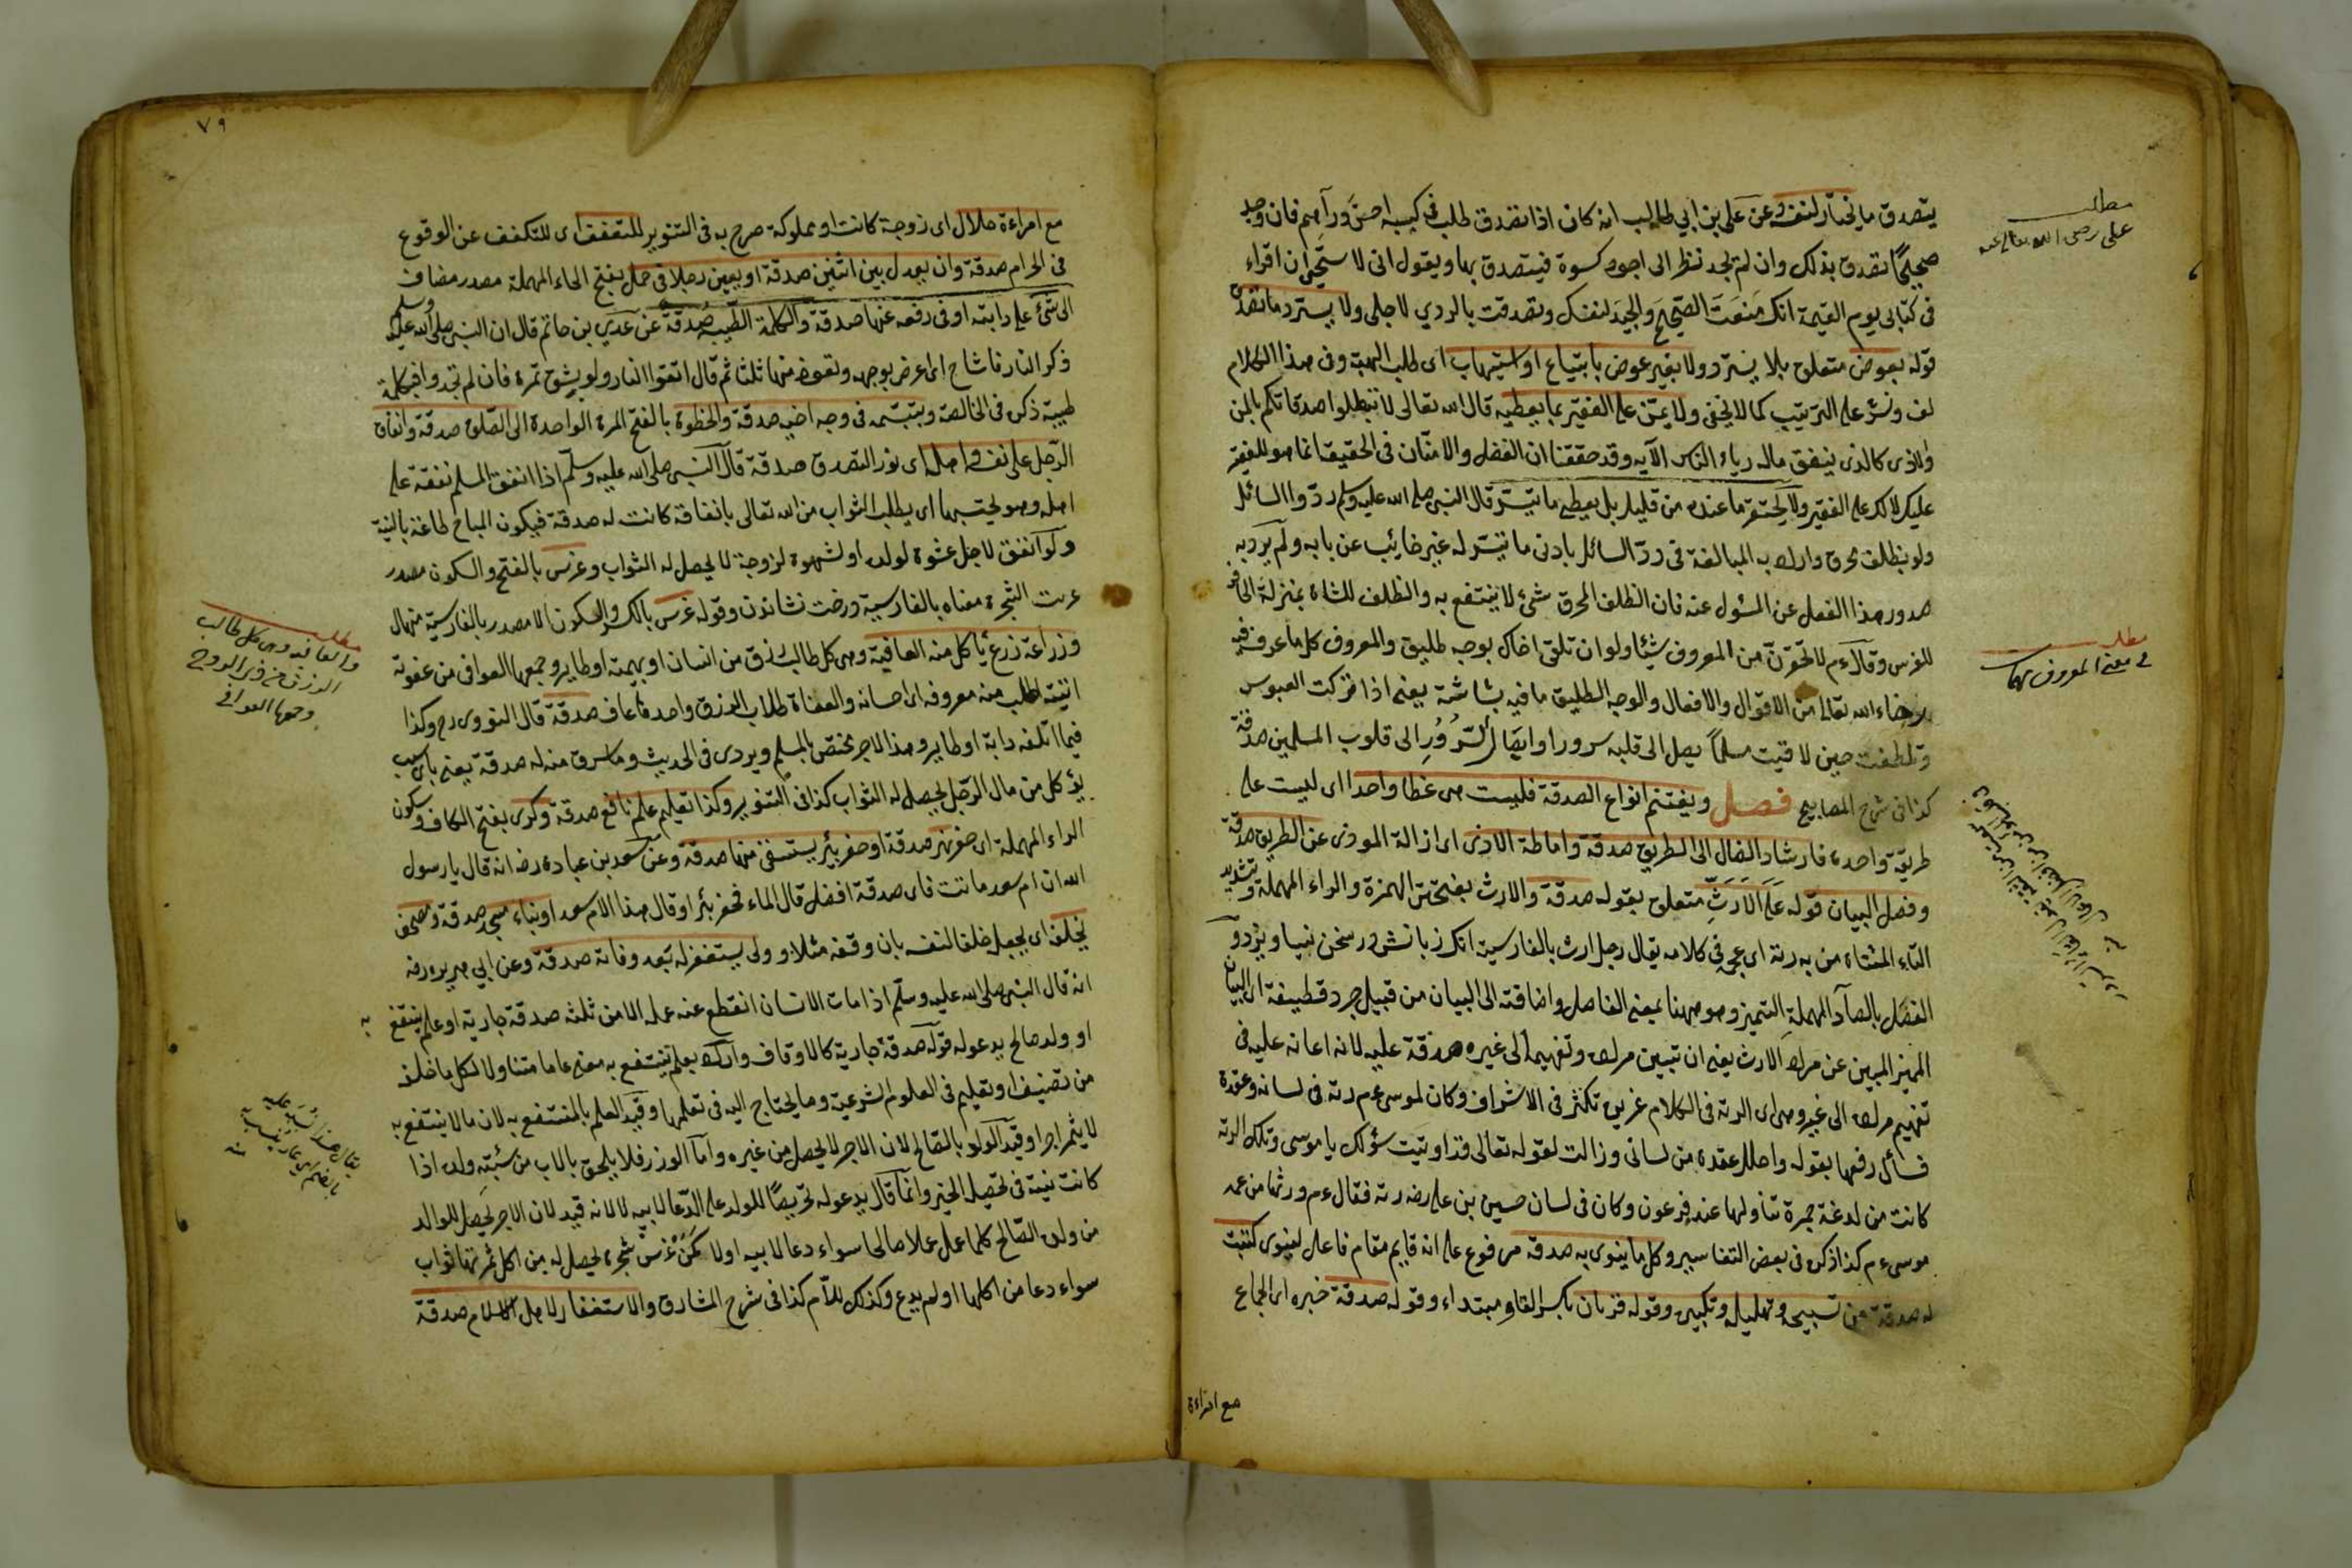 يتصدق ما يختار لنفسه وعن على بن ابي طالب انه كان اذا تصدق طلب فى كيسه احسن دراهم فان وجد
صحيحًا تصدق بذلك وان لم يجد نظر الى اجود كسوة فيتصدق بها ويقول انى لاستحيي ان اقراء
فى كتابى يوم القيمة انك منعت الصحيح والجيد لنفسك وتصدقت بالردي لاجلى ولا يسترد ما تصدق
قوله بعوض متعلق بلا يسترد ولا بغير عوض بابتياع او استيهاب اى طلب الهبة وفى هذا الكلام
لف ونشر على الترتيب كما لا يخفى ولا يمنّ على الفقير بما يعطيه قال الله تعالى لا تبطلوا صدقاتكم بالمن
والاذى كالذى ينفق ماله رياء الناس الآيه وقد حققنا ان الفضل والامتنان فى الحقيقة انما هو للفقير
عليك لا لك على الفقير ولا يحتقر ما عنده من قليل بل يعطى ما تيسّر قال النبى صلى الله عليه وسلم ردّوا السائل
ولو بظلف محرق واراد به المبالغة فى ردّ السائل بادنى ما تيسّر له غير خائب عن بابه ولم يرد به
صدور هذا الفعل عن المسئول عنه فان الظلف المحرق شئ لا ينتفع به والظلف للشاة بمنزلة الحافر
للفرس وقال ءم لا تحقرنّ من المعروف شيئا ولو ان تلقى اخاك بوجه طليق والمعروف كل ما عرف فيه
رضاء الله تعالى من الاقوال والافعال والوجه الطليق ما فيه بشاشة يعنى اذا تركت العبوس
وتلطفت حين لاقيت مسلماً يصل الى قلبه سرور وايصال السّرور الى قلوب المسلمين صدقة
كذا فى شرح المصابيح فصل ويغتنم انواع الصدقة فليست هى غطا واحدا اى ليست على
طريقة واحدة فارشاد الضال الى الطريق صدقة واماطة الاذى اى ازالة الموذى عن الطريق صدقة
وفصل البيان قوله على الارثّ متعلق بقوله صدقة والارث بفتحتين الهمزة والراء المهملة وتشديد
الثاء المثناة من به رتة اى عجمة فى كلامه يقال رجل ارت بالفارسية انك زبانش در سخن نبياويزد و
الفصل بالصاد المهملة التميز وهو ههنا بمعنى الفاصل واضافته الى البيان من قبيل جرد قطيفة اى البيان
المميز المبين عن مراد الارث يعنى ان تبيين مراده وتفهيمه الى غيره صدقة عليه لانه اعانه عليه فى
تفهيم مراده الى غيره وهى اى الرتة فى الكلام غريزة تكثر فى الاشراف وكان لموسى ءم رتة فى لسانه وعقدة
فسأل رفعها بقوله واحلل عقدة من لسانى وزالت لقوله تعالى قد اوتيت سؤلك يا موسى وتلك الرتة
كانت من لدغة جمرة تناولها عند فرعون وكان فى لسان حسين بن على رضه رتة فقال ءم ورثها من عمه
موسى ءم كذا ذكره فى بعض التفاسير وكل ما ينوى به صدقة مرفوع على انه قايم مقام فاعل لينوى كتبت
له صدقة من تسبيح وتهليل وتكبير وقوله قربان بكسر القاف مبتداء وقوله صدقة خبره اى الجماع
مع امراءة
مطلب
على رضى الله تعالى عنه
مطلب
فى معنى المعروف
٧٩
مع امراءة حلال اى زوجة كانت او مملوكة صرح به فى التنوير للتعفف اى للتكفف عن الوقوع
فى الحرام صدقة وان يعدل بين اثنين صدقة او يعين رجلا فى حمل بفتح الحاء المهملة مصدر مضاف
الى شئ على دابته او فى رفعه عنها صدقة والكلمة الطيبة صدقة عن عدي بن حاتم قال ان النبى صلى الله عليه وسلم
ذكر النار فاشاح اى اعرض بوجهه وتعوذ منها ثلثا ثم قال اتقوا النار ولو بشق تمرة فان لم تجدوا فبكلمة
طيبة ذكره فى الخالصة وتبسّمه فى وجه اخيه صدقة والخطوة بالفتح المرة الواحدة الى الصلوة صدقة وانفاق
الرّجل على نفسه واهله اى نور التصدق صدقة قال النبى صلى الله عليه وسلّم اذا انفق المسلم نفقة على
اهله وهو يحتسبها اى يطلب الثواب من الله تعالى بانفاقه كانت له صدقة فيكون المباح طاعة بالنية
ولو انفق لاجل عشوة لولده او لشهوة لزوجة لا يحصل له الثواب وغرس بالفتح والسكون مصدر
غرست الشجرة معناه بالفارسية درخت نشاندن وقوله غرس بالكسر والسكون لا مصدر بالفارسية نهال
وزراعة زرع يأكل منه العافية وهى كل طالب رزق من انسان او بهيمة او طاير وجمعها العوافى من عفوته
اتيته اطلب منه معروفه اى احسانه والعفاة طلاب الرزق واحدها عاف صدقة قال النووى رح وكذا
فيما اتلفه دابة او طاير وهذا الاجر مختص بالمسلم ويروى فى الحديث وما سرق منه له صدقة يعنى باى سبب
يؤكل من مال الرّجل يحصل له الثواب كذا فى التنوير وكذا تعليم علم نافع صدقة وكرى بفتح الكاف وسكون
الراء المهملة اى حفر نهر صدقة او حفر بئر يستسقى منها صدقة وعن سعد بن عبادة رضه انه قال يا رسول
الله ان ام سعد ماتت فاى صدقة افضل قال الماء فحفر بئرا وقال هذا لام سعد او بناء مسجد صدقة ومصحف
يخلف اى يجعل خلفا لنفسه بان وقفه مثلا وولى يستغفر له بعد وفاته صدقة وعن ابي هريرة رضه
انه قال النبى صلى الله عليه وسلّم اذا مات الانسان انقطع عنه عمله الا من ثلثه صدقة جارية او علم ينتفع به
او ولد صالح يدعو له قوله صدقة جارية كالاوقاف واراد بعلم ينتفع به معنى عاما متناولا لكل ما خلف
من تصنيف او تعليم فى العلوم الشرعية وما يحتاج اليه فى تعلمها وقيد العلم بالمنتفع به لان ما لا ينتفع به
لا يثمر اجرا وقيد الولد بالصّالح لان الاجر لا يحصل من غيره واما الوزر فلا يلحق بالاب من سيّئة ولده اذا
كانت نيته فى تحصيل الخير وانما قال يدعو له تحريضًا للولد على الدّعا لابيه لا لانه قيد لان الاجر يحصل للوالد
من ولده الصّالح كلما عمل عملا صالحا سواء دعا لابيه او لا كمن غرس شجرة يحصل له من اكل ثمرتها ثواب
سواء دعا من اكلها او لم يدع وكذلك للام كذا فى شرح المشارق والاستغفار لاهل الاسلام صدقة
مطلب
والعافية وهى كل طالب
الرزق من ذى الروح
وجمعها العوافى